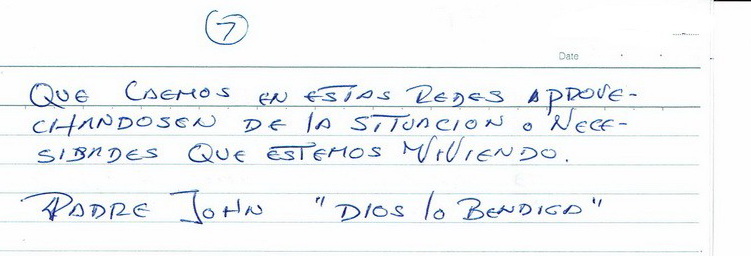 7
Date
QUE CAEMOS EN ESTAS REDES APROVE-
CHANDOSEN DE LA SITUACION O NECE-
SIDADES QUE ESTEMOS VIVIENDO.
PADRE JOHN "DIOS lo BENDIGA"